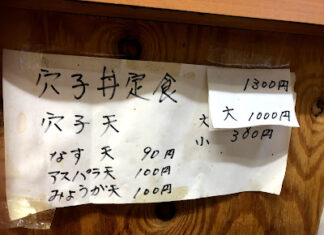 穴子丼定食 1300円
穴子天 大 1000円
小 300円
なす天 90円
アスパラ天 100円
みょうが天 100円